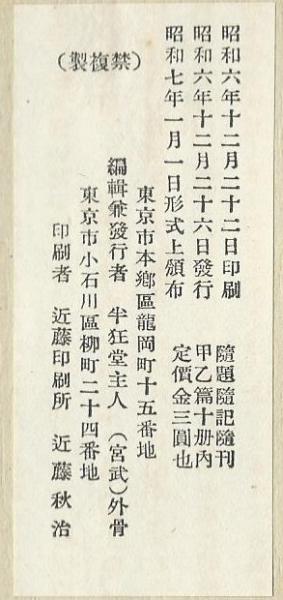 昭和六年十二月二十二日印刷　隨題隨記隨刊
昭和六年十二月二十六日發行　甲乙篇十册內
昭和七年一月一日形式上頒布　定價金三圓也
東京市本鄕區龍岡町十五番地
編輯兼發行者　半狂堂主人　(宮武)外骨
(禁複製)
東京市小石川區柳町二十四番地
印刷者　近藤印刷所　近藤秋治